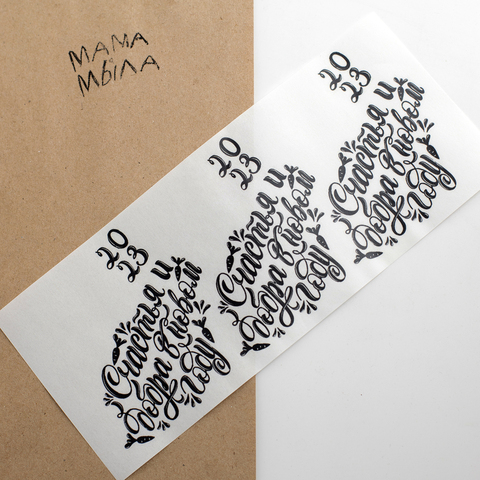 МАМА
МЫЛА
20
23
Счастья и
добра в Новом
году
20
23
Счастья и
добра в Новом
году
20
23
Счастья и
добра в Новом
году